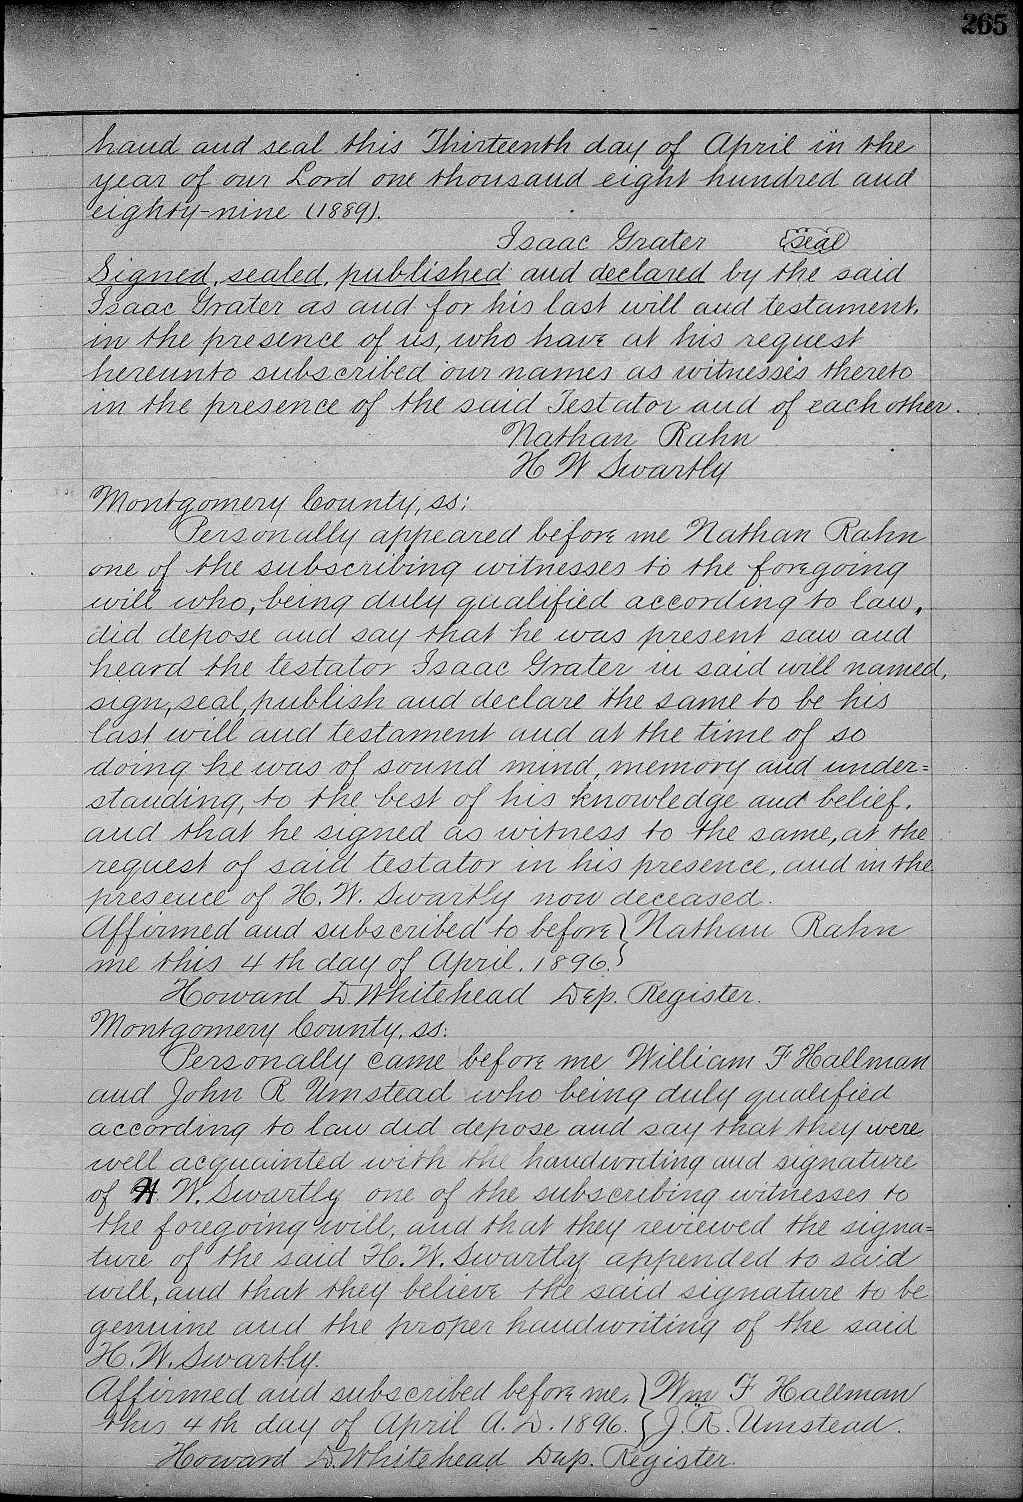 265
hand and seal this Thirteenth day of April in the
year of our Lord one thousand eight hundred and
eighty-nine (1889).
Isaac Grater seal
Signed, sealed, published and declared by the said
Isaac Grater as and for his last will and testament.
in the presence of us, who have at his request
hereunto subscribed our names as witnesses thereto
in the presence of the said Testator and of each other.
Nathan Rahn
H W Swartly
Montgomery County, ss:
Personally appeared before me Nathan Rahn
one of the subscribing witnesses to the foregoing
will who, being duly qualified according to law,
did depose and say that he was present saw and
heard the testator Isaac Grater in said will named,
sign, seal, publish and declare the same to be his
last will and testament and at the time of so
doing he was of sound mind, memory and under=
standing, to the best of his knowledge and belief.
and that he signed as witness to the same, at the
request of said testator in his presence, and in the
presence of H. W. Swartly now deceased.
Affirmed and subscribed to before } Nathan Rahn
me this 4th day of April. 1896. }
Howard D. Whitehead Dep. Register.
Montgomery County, ss:
Personally came before me William F Hallman
and John R Umstead who being duly qualified
according to law did depose and say that they were
well acquainted with the handwriting and signature
of H. W. Swartly one of the subscribing witnesses to
the foregoing will, and that they reviewed the signa=
ture of the said H. W. Swartly appended to said
will, and that they believe the said signature to be
genuine and the proper handwriting of the said
H. W. Swartly.
Affirmed and subscribed before me, } Wm F Hallman
this 4th day of April A. D. 1896. } J. R. Umstead.
Howard D. Whitehead Dep. Register.